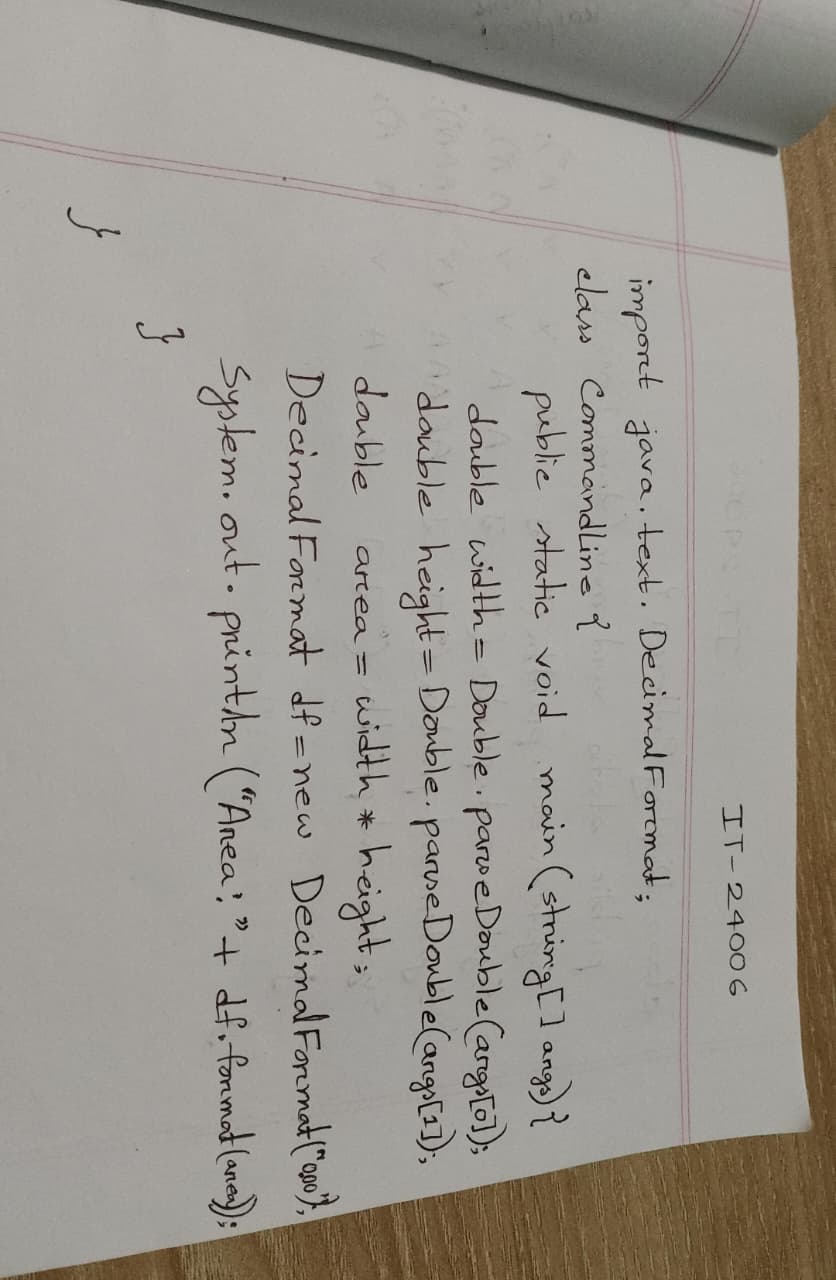 IT-24006
import java.text.DecimalFormat;
class CommandLine {
public static void main(string[] args){
double width = Double.parseDouble(args[0]);
double height = Double.parseDouble(args[1]);
double area = width * height;
DecimalFormat df = new DecimalFormat("0.00");
System.out.println("Area: " + df.format(area));
}
}